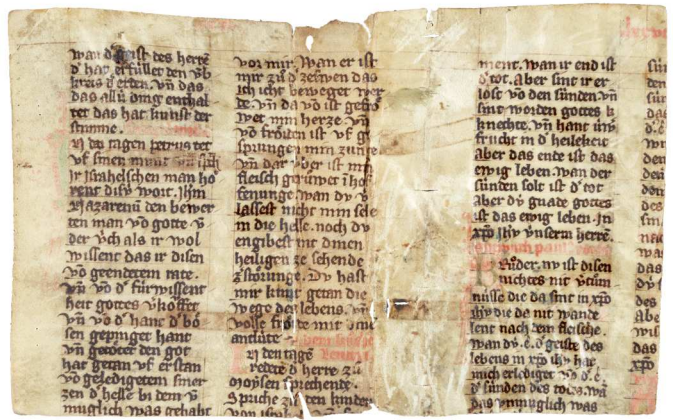 wan d' geist des herrē
d' hat erfüllet den vb
kreis d' erden. vn̄ das
das allü ding enthal
tet das hat kunst der
stimme.
In den tagen petrus tet
vf sinen munt vn̄ sprach
ir israhelschen man hö
rent disv wort. Ihm
Nazarenū den bewer
ten man vō gotte v̄
der v̊ch als ir wol
wissent das ir disen
vō geendetem rate.
vn̄ vō d' fürwissent
heit gottes v̊köffet
vn̄ vō d' hant d' bö
sen gepinget hant
vn̄ getötet den got
hat getan vf erstan
vō geledigetem smer
zen d' helle bi dem v̄
muglich was gehabt
vor mir. Wan er ist
mir zů d' zeswen das
ich iht beweget wer
de. vn̄ da vō ist gefrö
wet min herze. vn̄
vō fröiden ist vf ge
sprungen min zunge
vn̄ dar v̊ber ist min
fleisch gerüwet i hof
fenunge. wan dv v̄
lassest niht min sele
in die helle. noch dv
engibest nit dinen
heiligen ze sehende
zstörunge. Dv hast
mir kunt getan die
wege des lebens. vn̄
volle fröide mit dine
antlüte
In den tagē
redete d' herre zů
moysen sprechende.
Spriche zů den kinder
von israhel
ment. wan ir end ist
d' tot. Aber sint ir er
löst vō den sünden. vn̄
sint worden gottes k
knechte. vn̄ hant üwer
frucht in d' heilekeit
aber das ende ist das
ewig leben. wan der
sünden solt ist d' tot
aber dv gnade gottes
ist das ewig leben. In
xp̄o ihv v̊nserm herrē.
Brůder. nv ist disen
nichtes nit v̄tům
nüsse die da sint in xp̄o
ihv die da nit wande
lent nach dem fleische.
wan dv. e. d' geiste des
lebens in xp̄o ihv hat
mich erlediget vō d'. e.
d' sünden des todes. wā
das vnmuglich was
sün
den
sün
das
d'. e
wir
dem
den
dem
des
sin
nac
was
das
dv
des
abe
wis
das
xp̄o